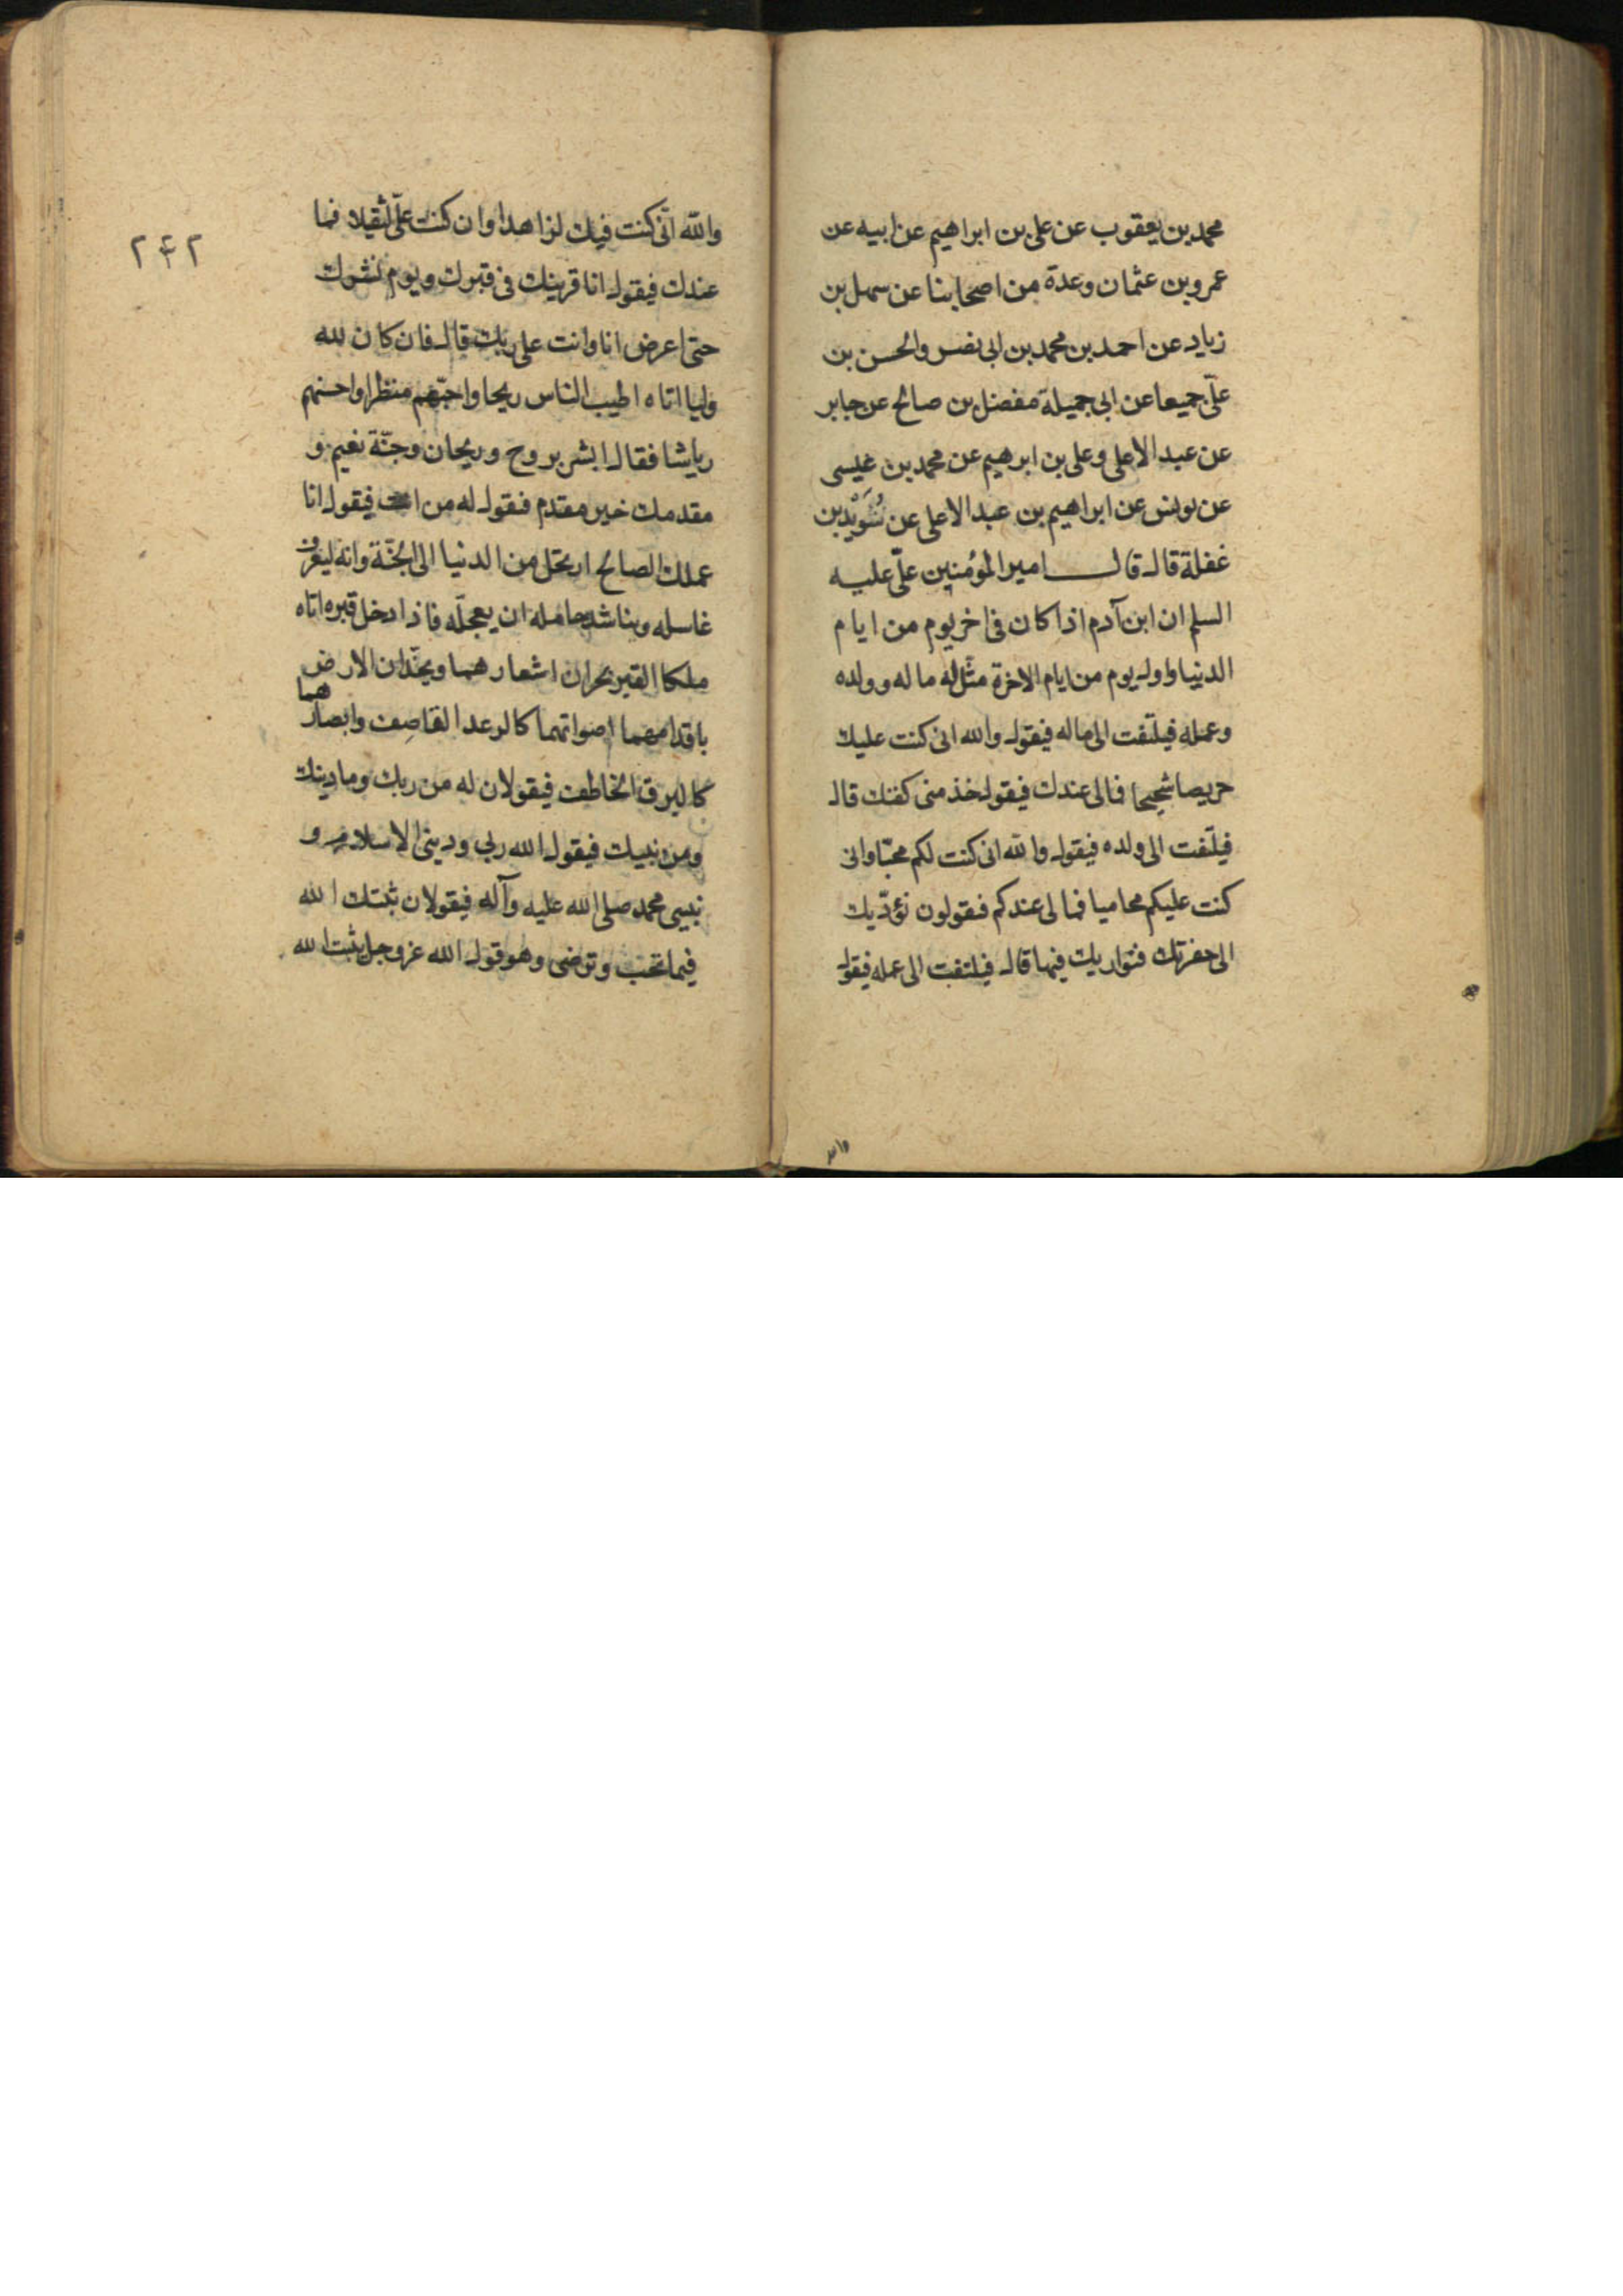 محمد بن يعقوب عن على بن ابراهيم عن ابيه عن
عمرو بن عثمان وعدة من اصحابنا عن سهل بن
زياد عن احمد بن محمد بن ابى نصر والحسن بن
علىّ جميعا عن ابى جميلة مفضل بن صالح عن جابر
عن عبد الاعلى وعلى بن ابرهيم عن محمد بن عيسى
عن يونس عن ابراهيم بن عبد الاعلى عن سُوَيْد بن
غفلة قال قال امير المؤمنين علىّ عليه
السلم ان ابن آدم اذا كان فى اخر يوم من ايام
الدنيا واول يوم من ايام الاخرة مثّل له ماله وولده
وعمله فيلتفت الى ماله فيقول والله انى كنت عليك
حريصا شحيحا فالى عندك فيقول خذ منى كفنك قال
فيلتفت الى ولده فيقول والله انى كنت لكم محبّا وانى
كنت عليكم محاميا فمالى عندكم فيقولون نؤدّيك
الى حفرتك فنواريك فيها قال فيلتفت الى عمله فيقول
والله
والله انّى كنت فيك لزاهدا وان كنت علىّ لثقيلا فما
عندك فيقول انا قرينك فى قبرك ويوم نشرك
حتى اعرض انا وانت على ربك قال فان كان لله
وليا اتاه اطيب الناس ريحا واحبّهم منظرا واحسنهم
رياشا فقال ابشر بروح وريحان وجنّة نعيم و
مقدمك خير مقدم فيقول له من انت فيقول انا
عملك الصالح ارتحل من الدنيا الى الجنّة وانه ليعرف
غاسله ويناشد حامله ان يعجلّه فاذا ادخل قبره اتاه
ملكا القبر يجران اشعارهما ويخدّان الارض
باقدامهما اصواتهما كالرعد القاصِف وابصارهما
كالبرق الخاطف فيقولان له من ربك وما دينك
ومن نبيك فيقول الله ربى ودينى الاسلام و
نبيى محمد صلى الله عليه وآله فيقولان ثبّتك الله
فيما تحب وترضى وهو قول الله عز وجل يثبت الله